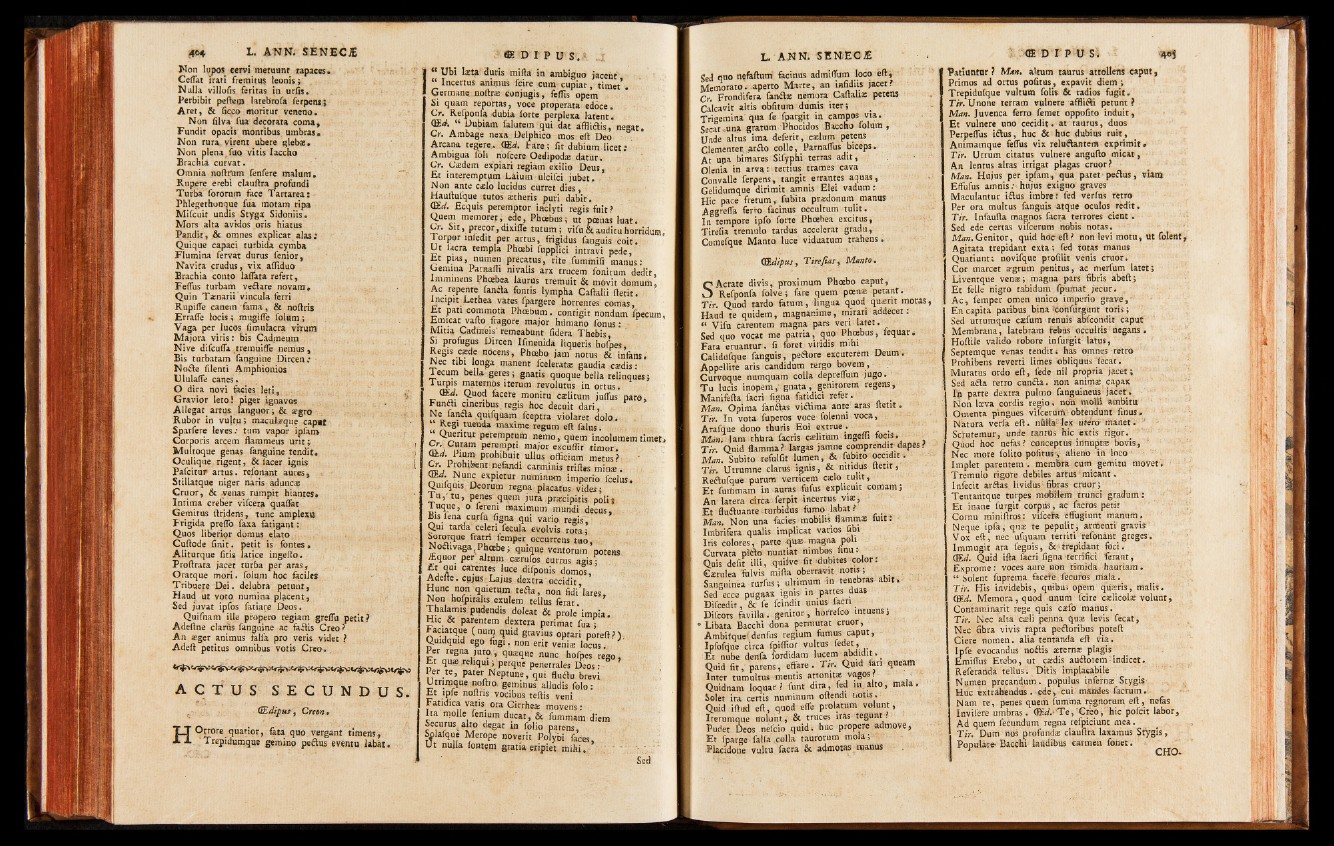 404 L. ANN. SENECÆ
Non lupos cervi metuunt rapaces.
Cessat irati fremitus leonis;
Nulla villosis feritas in ursis.
Perbibit pestem latebrosa serpens;
Aret, & sicco moritur veneno.
Non silva sua decorata coma,
Fundit opacis montibus umbras.
Non rura virent ubere glebæ.
Non plena suo vitis Iaccho
Brachia curvat.
Omnia nostrum sensere malum.
Rupere erebi claustra profundi
Turba sororum face Tartarea:
Phlegethonque sua motam ripa
Miscuit undis Styga Sidoniis.
Mors alta avidos oris hiatus
Pandit, & omnes explicat alas:
Quique capaci turbida cymba
Flumina servat durus senior,
Navita crudus, vix assiduo
Brachia conto lassata refert,
Fessus turbam vectare novam.
Quin Tænarii vincula ferri
Rupisse canem fama, & nostris
Errasse locis; mugisse solum;
Vaga per lucos simulacra virum
Majora viris: bis Cadmeum
Nive discussa tremuisse nemus,
Bis turbatam sanguine Dircen:
Nocte silenti Amphionios
Ululasse canes.
O dira novi facies leti,
Gravior leto! piger ignavos
Allegat artus languor; & ægro
Rubor in vultu; maculæque caput
Sparsere leves: tum vapor ipsam
Corporis arcem flammeus urit;
Multoque genas sanguine tendit.
Oculique rigent, & sacer ignis
Pascitur artus. resonant aures,
Stillatque niger naris aduncæ
Cruor, & venas rumpit hiantes.
Intima creber viscera quassat
Gemitus stridens, tunc amplexu
Frigida presso saxa fatigant:
Quos liberior domus elato
Custode sinit. petit is fontes.
Aliturque sitis latice ingesto.
Prostrata jacet turba per aras,
Oratque mori. solum hoc faciles
Tribuere Dei. delubra petunt,
Haud ut voto numina placent,
Sed juvat ipsos satiare Deos.
Quisnam ille propero regiam gressu petit?
Adestne clarus sanguine ac factis Creo?
An æger animus falsa pro veris videt?
Adest petitus omnibus votis Creo.
ACTUS SECUNDUS.
Œdipus, Creon.
HOrrore quatior, fata quo vergant timens,
Trepidumque gemino pectus eventu labat.
ŒDIPUS.
“ Ubi læta duris mista in ambiguo jacent,
“ Incertus animus scire cum cupiat, timet.
Germane nostræ conjugis, fessis opem
Si quam reportas, voce properata edoce.
Cr. Responsa dubia sorte perplexa latent.
Œd. “ Dubiam salutem qui dat afflictis, negat.
Cr. Ambage nexa Delphico mos est Deo
Arcana tegere. Œd. Fare: sit dubium licet:
Ambigua soli noscere Oedipodæ datur.
Cr. Cædem expiari regiam exilio Deus,
Et interemptum Laium ulcisci jubet.
Non ante cælo lucidus curret dies,
Haustusque tutos ætheris puri dabit.
Œd. Ecquis peremptor inclyti regis fuit?
Quem memoret, ede, Phœbus; ut pœnas luat.
Cr. Sit, precor, dixisse tutum; visu & auditu horridum,
Torpor insedit per artus, frigidus sanguis coit.
Ut sacra templa Phœbi supplici intravi pede,
Et pias, numen precatus, rite summisi manus:
Gemina Parnassi nivalis arx trucem sonitum dedit,
Imminens Phœbea laurus tremuit & movit domum,
Ac repente sancta fontis lympha Castalii stetit.
Incipit Lethea vates spargere horrentes comas,
Et pati commota Phœbum. contigit nondum specum,
Emicat vasto fragore major humano sonus:
Mitia Cadmeis remeabunt sidera Thebis,
Si profugus Dircen Ismenida liqueris hospes,
Regis cæde nocens, Phœbo jam notus & infans.
Nec tibi longa manent sceleratæ gaudia cædis:
Tecum bella geres; gnatis quoque bella relinques;
Turpis maternos iterum revolutus in ortus.
Œd. Quod facere monitu cælitum jussus paro,
Functi cineribus regis hoc decuit dari,
Ne sancta quisquam sceptra violaret dolo.
“ Regi tuenda maxime regum est salus.
“ Queritur peremptum nemo, quem incolumem timet.
Cr. Curam perempti major excussit timor.
Œd. Pium prohibuit ullus officium metus?
Cr. Prohibent nefandi carminis tristes minæ.
Œd. Nunc expietur numinum imperio scelus.
Quisquis Deorum regna placatus vides;
Tu, tu, penes quem jura præcipitis poli;
Tuque, o sereni maximum mundi decus,
Bis sena cursu signa qui vario regis,
Qui tarda celeri secula evolvis rota;
Sororque fratri semper occurrens tuo,
Noctivaga Phœbe; quique ventorum potens
Æquor per altum cærulos currus agis;
Et qui carentes luce disponis domos,
Adeste. cujus Lajus dextra occidit,
Hunc non quietum tecta, non fidi lares,
Non hospitalis exulem tellus ferat.
Thalamis pudendis doleat & prole impia.
Hic & parentem dextera perimat sua;
Faciatque (num quid gravius optari potest?)
Quidquid ego fugi. non erit veniæ locus.
Per regna juro, quæque nunc hospes rego,
Et quæ reliqui; perque penetrales Deos:
Per te, pater Neptune, qui fluctu brevi
Utrimque nostro geminus alludis solo:
Et ipse nostris vocibus testis veni
Fatidica vatis ora Cirrheæ movens:
Ita molle senium ducat, & summam diem
Securus alto degat in solio parens,
Solasque Merope noverit Polybi faces,
Ut nulla sontem gratia eripiet mihi.
Sed
L. ANN. SENECÆ
Sed quo nefastum facinus admissum loco est,
Memorato. aperto Marte, an insidiis jacet?
Cr. Frondifera sanctæ nemora Castaliæ petens
Calcavit altis obsitum dumis iter;
Trigemina qua se spargit in campos via.
Secat una gratum Phocidos Baccho solum,
Unde altus ima deserit, cælum petens
Clementer acto colle, Parnassus biceps.
At una bimares Sisyphi terras adit,
Olenia in arva: tertius trames cava
Convalle serpens, tangit errantes aquas,
Gelidumque dirimit amnis Elei vadum:
Hic pace fretum, subita prædonum manus
Aggressa ferro facinus occultum tulit.
In tempore ipso sorte Phœbea excitus,
Tiresia tremulo tardus accelerat gradu,
Comesque Manto luce viduatum trahens.
Œdipus, Tiresias, Manto.
SAcrate divis, proximum Phœbo caput,
Responsa solve; fare quem pœnæ petant.
Tir. Quod tardo fatum, lingua quod quærit motas,
Haud te quidem, magnanime, mirari addecet:
“ Visu carentem magna pars veri latet.
Sed quo vocat me patria, quo Phœbus, sequar.
Fata eruantur. si foret viridis mihi
Calidusque sanguis, pectore excuterem Deum.
Appellite aris candidum tergo bovem,
Curvoque numquam colla depressum jugo.
Tu lucis inopem, gnata, genitorem regens,
Manifesta sacri signa fatidici refer.
Man. Opima sanctas victima ante aras stetit.
Tir. In vota superos voce solenni voca,
Arasque dono thuris Eoi extrue.
Man. Jam thura sacris cælitum ingessi focis.
Tir. Quid flamma? largas jamne comprendit dapes?
Man. Subito refulsit lumen, & subito occidit.
Tir. Utrumne clarus ignis, & nitidus stetit,
Rectusque purum verticem cælo tulit,
Et summam in auras fusus explicuit comam;
An latera circa serpit incertus viæ,
Et fluctuante turbidus fumo labat?
Man. Non una facies mobilis flammæ fuit:
Imbrifera qualis implicat varios sibi
Iris colores, parte quæ magna poli
Curvata picto nuntiat nimbos sinu:
Quis desit illi, quisve sit dubites color:
Cærulea fulvis mista oberravit notis;
Sanguinea rursus; ultimum in tenebras abit.
Sed ecce pugnax ignis in partes duas
Discedit, & se scindit unius sacri
Discors favilla. genitor, horresco intuens;
Libata Bacchi dona permutat cruor,
Ambitque densus regium fumus caput,
Ipsosque circa spissior vultus sedet,
Et nube densa sordidam lucem abdidit.
Quid sit, parens, effare. Tir. Quid fari queam
Inter tumultus mentis attonitæ vagos?
Quidnam loquar? sunt dira, sed in alto, mala.
Solet ira certis numinum ostendi notis.
Quid istud est, quod esse prolatum volunt,
Iterumque nolunt, & truces iras tegunt?
Pudet Deos nescio quid. huc propere admove,
Et sparge salsa colla taurorum mola;
Placidone vultu sacra & admotas manus
ŒDIPUS. 405
Patiuntur? Man. altum taurus attollens caput,
Primos ad ortus positus, expavit diem;
Trepidusque vultum solis & radios fugit.
Tir. Unone terram vulnere afflicti petunt?
Man. Juvenca ferro semet opposito induit,
Et vulnere uno cecidit. at taurus, duos
Perpessus ictus, huc & huc dubius ruit,
Animamque fessus vix reluctantem exprimit.
Tir. Utrum citatus vulnere angusto micat,
An lentus altas irrigat plagas cruor?
Man. Hujus per ipsam, qua patet pectus, viam
Effusus amnis: hujus exiguo graves
Maculantur ictus imbre: sed versus retro
Per ora multus sanguis atque oculos redit.
Tir. Infausta magnos sacra terrores cient.
Sed ede certas viscerum nobis notas.
Man. Genitor, quid hoc est? non levi motu, ut solent,
Agitata trepidant exta; sed totas manus
Quatiunt; novusque prosilit venis cruor.
Cor marcet ægrum penitus, ac mersum latet;
Liventque venæ; magna pars fibris abest;
Et felle nigro tabidum spumat jecur.
Ac, semper omen unico imperio grave,
En capita paribus bina consurgunt toris;
Sed utrumque cæsum tenuis abscondit caput
Membrana, latebram rebus occultis negans.
Hostile valido robore insurgit latus,
Septemque venas tendit; has omnes retro
Prohibens reverti limes obliquus secat.
Mutatus ordo est, sede nil propria jacet;
Sed acta retro cuncta. non animæ capax
In parte dextra pulmo sanguineus jacet.
Non læva cordis regio. non molli ambitu
Omenta pingues viscerum obtendunt sinus.
Natura versa est. nulla lex utero manet.
Scrutemur, unde tantus hic extis rigor.
Quod hoc nefas? conceptus innuptæ bovis,
Nec more solito positus, alieno in loco
Implet parentem. membra cum gemitu movet.
Tremulo rigore debiles artus micant.
Infecit arctas lividus fibras cruor;
Tentantque turpes mobilem trunci gradum:
Et inane surgit corpus, ac sacros petit
Cornu ministros: viscera effugiunt manum.
Neque ista, quæ te pepulit, armenti gravis
Vox est, nec usquam territi resonant greges.
Immugit ara segois, & trepidant foci.
Œd. Quid ista sacri signa terrifici ferant,
Exprome: voces aure non timida hauriam.
“ Solent suprema facere securos mala.
Tir. His invidebis, quibus opem quæris, malis.
Œd. Memora, quod unum scire cælicolæ volunt,
Contaminarit rege quis cæso manus.
Tir. Nec alta cæli penna quæ levis secat,
Nec fibra vivis rapta pectoribus potest
Ciere nomen. alia tentanda est via.
Ipse evocandus noctis æternæ plagis
Emissus Erebo, ut cædis auctorem indicet.
Reseranda tellus. Ditis implacabile
Numen precandum. populus infernæ Stygis
Huc extrahendus. ede, cui mandes sacrum.
Nam te, penes quem summa regnorum est, nefas
Invisere umbras. Œd. Te, Creo, hic poscit labor,
Ad quem secundum regna respiciunt mea.
Tir. Dum nos profundæ claustra laxamus Stygis,
Populare Bacchi laudibus carmen sonet.
CHO-